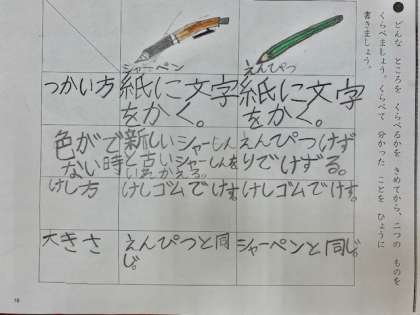 どんな ところを くらべるかを きめてから、二つの ものを
くらべましょう。くらべて 分かった ことを ひょうに
書きましょう。
シャーペン
えんぴつ
つかい方
紙に文字
をかく。
紙に文字
をかく。
色がで
ない時
新しいシャーしん
と古いシャーしんを
いれかえる。
えんぴつけず
りでけずる。
けし方
けしゴムでけす。
けしゴムでけす。
大きさ
えんぴつと同
じ。
シャーペンと同じ。